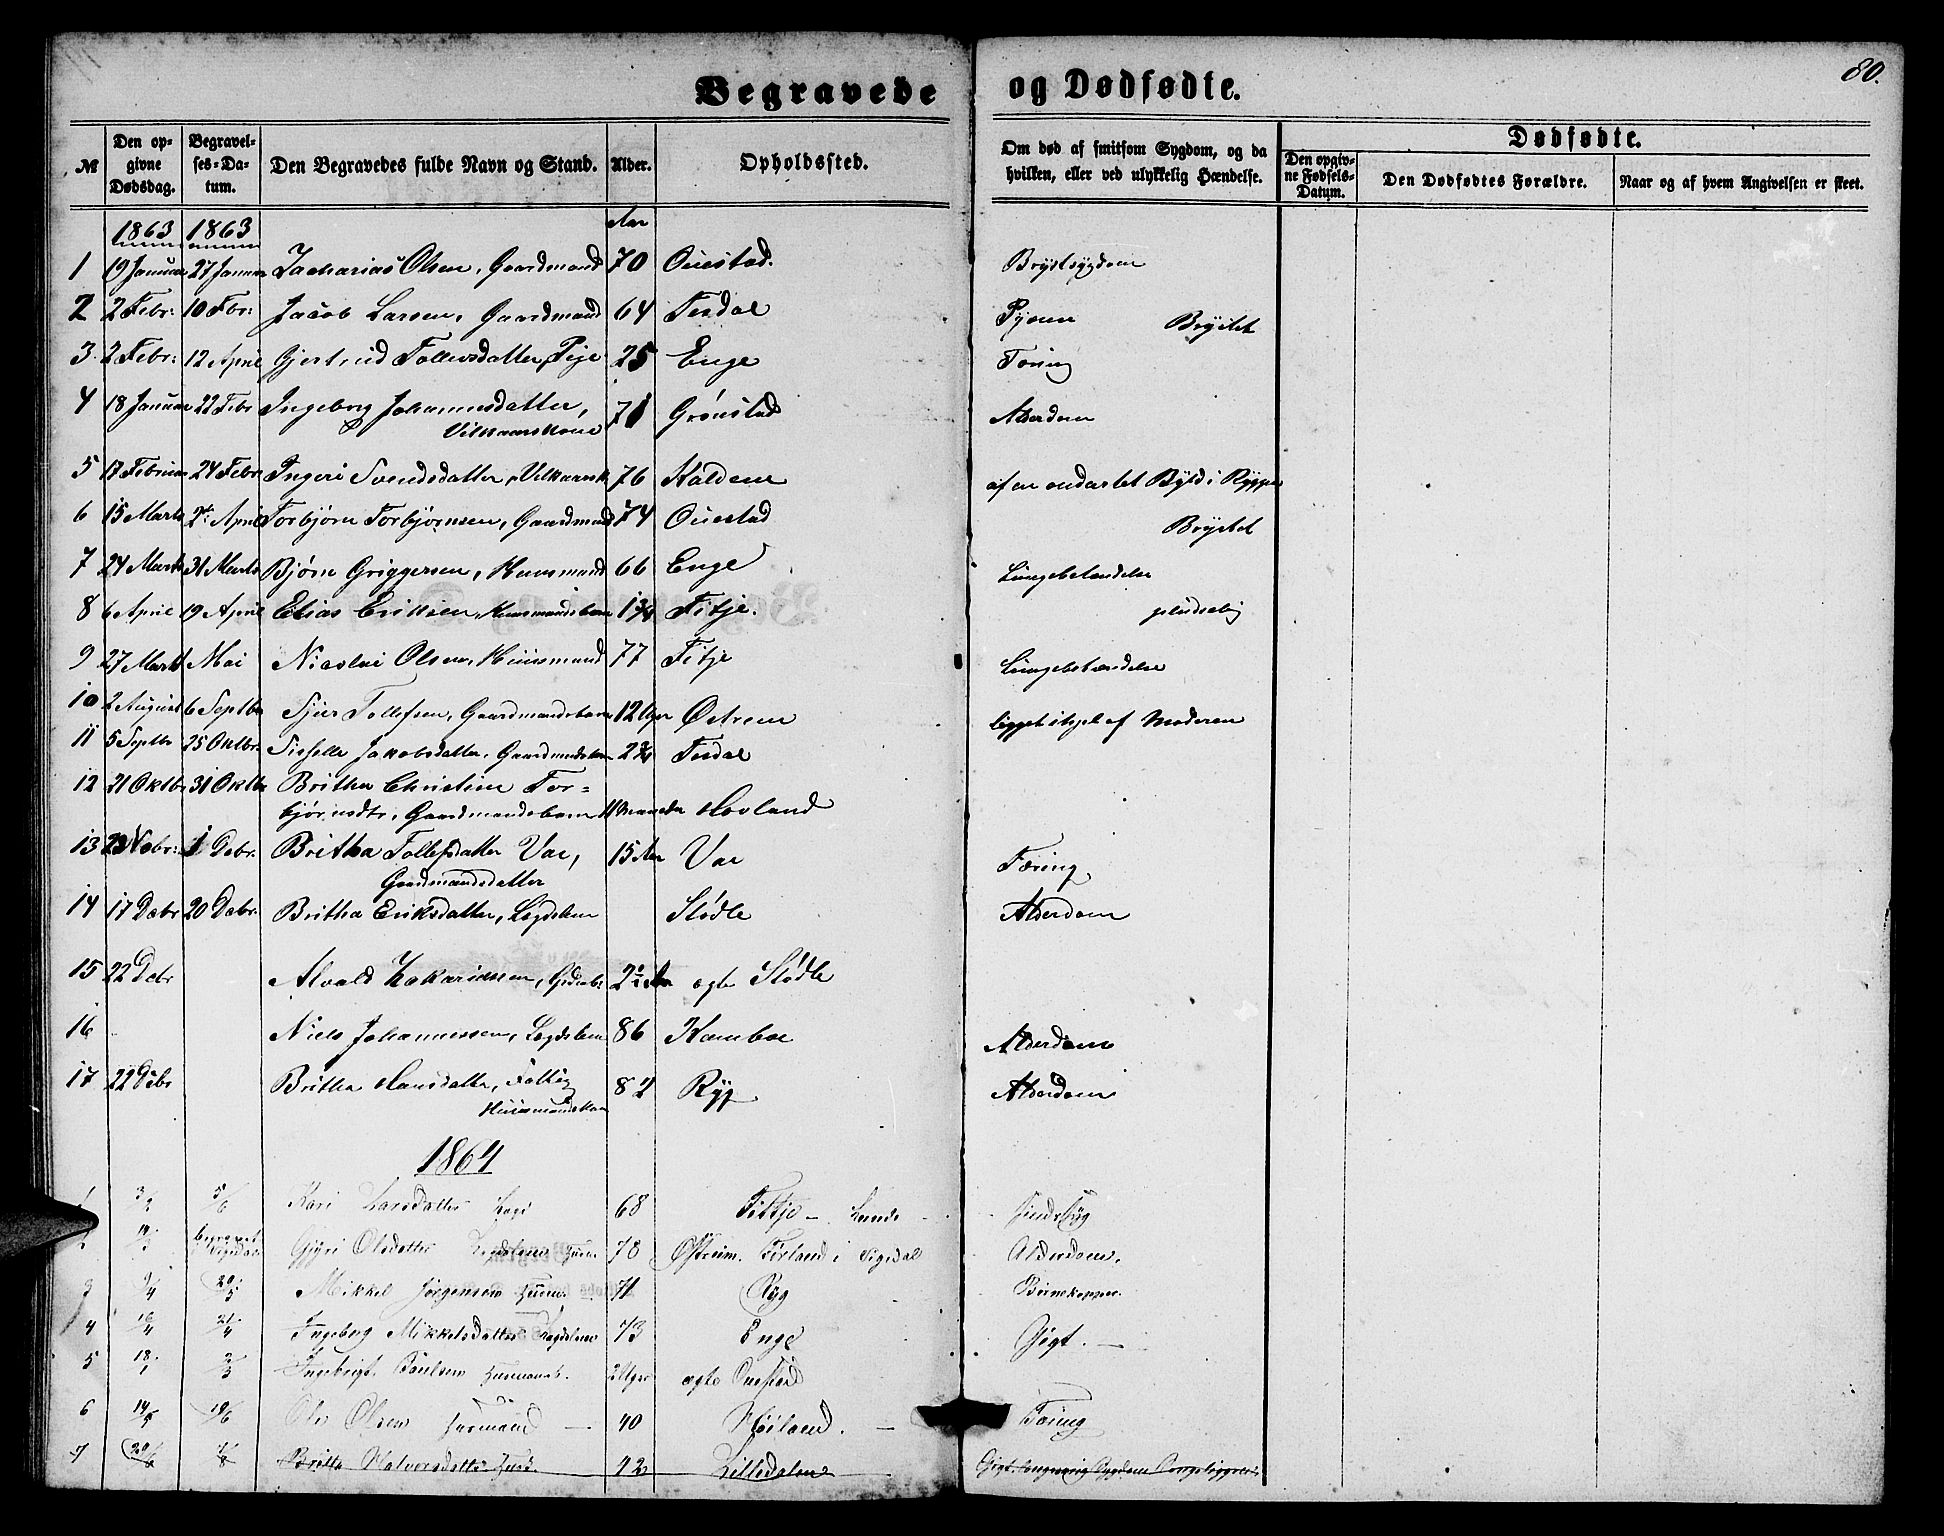 80.
Begravede og Dødfødte.
№ Den opgivne Dødsdag. Begravelses-Datum. Den Begravedes fulde Navn og Stand. Alder. Opholdssted. Om død af smitsom Sygdom, og da hvilken, eller ved ulykkelig Hændelse. Dødfødte. Den opgivne Fødsels-Datum. Den Dødfødtes Forældre. Naar og af hvem Angivelsen er skeet.
1863 1863 Aar
1 19 Januar 27 Januar Zacharias Olsen, Gaardmand 70 Ouestad. Brystsygdom
2 2 Febr: 10 Fbr: Jacob Larsen, Gaardmand 64 Tesdal Brystet
3 2 Febr: 12 April Gjertrud Tollevsdatter, Pige 25 Enge Tæring
4 18 Januar 22 Febr Ingeborg Johannesdatter, 71 Grønstad Alderdom
Vilkaarskone
5 17 Februar 24 Febr Ingeri Svendsdatter, Vilkaarsk 76 Haldene af en ondartet Byld i Ryggen
6 15 Marts 2 April Torbjørn Torbjørnsen, Gaardmand 74 Ouestad Brystet
7 24 Marts 31 Marts Bjørn Griggersen, Huusmand 66 Enge Lungebetændelse
8 6 April 19 April Elias Eriksen, Huusmandsbarn 1 3/4 Fitje. pludselig
9 27 Marts Mai Nicolai Olsen, Huusmand 77 Fitje Lungebetændelse
10 2 August 6 Septbr Sjur Tollefsen, Gaardmandsbarn 12 Uger Østrem ligget ihjel af Moderen
11 5 Septbr 25 Oktbr. Sisselle Jakobsdatter, Gaardmandsbarn 2 3/4 Tesdal
12 21 Oktbr 31 Oktbr Britha Christine Tor-
bjørnsdtr, Gaardmandsbarn 11 Maaneder Hovland
13 23 Novbr: 1 Debr. Britha Tollefsdatter Vae, 15 Aar Vae Tæring
Gaardmandsdatter
14 17 Debr 20 Debr. Britha Eriksdatter, Lægdslem Stødle Alderdom
15 22 Debr Alvald Zakariassen, 2 1/2 Aar ægte Stødle
16 Niels Johannessen, Lægdslem 86 Kambe Alderdom
17 22 Debr Britha Hansdatter, Fattig 82 Ryg Alderdom
Huusmandskone
1864
1 3/2 5/6 Kari Larsdatter 68 Fitje Lunde Sindssyg
2 begravet i Vigedal Gyri Olsdatter Lægdslem 78 Østreim. i Vigedal Alderdom.
3 9/4 20/5 Mikkel Jørgensen 71 Ryg Børnekopper.
4 16/4 21/4 Ingeborg Mikkelsdatter Lægdslem 73 Enge Gigt.
5 18/1 2/3 Ingebrigt Paulsen 2 Uger ægte Ouestad
6 14/5 19/6 Ole Olsen Husmand 40 Høiland. Tæring
7 29/6 7/8 Britha Halvorsdatter 42 Lilledalen Gigt. langvarig Sygdom